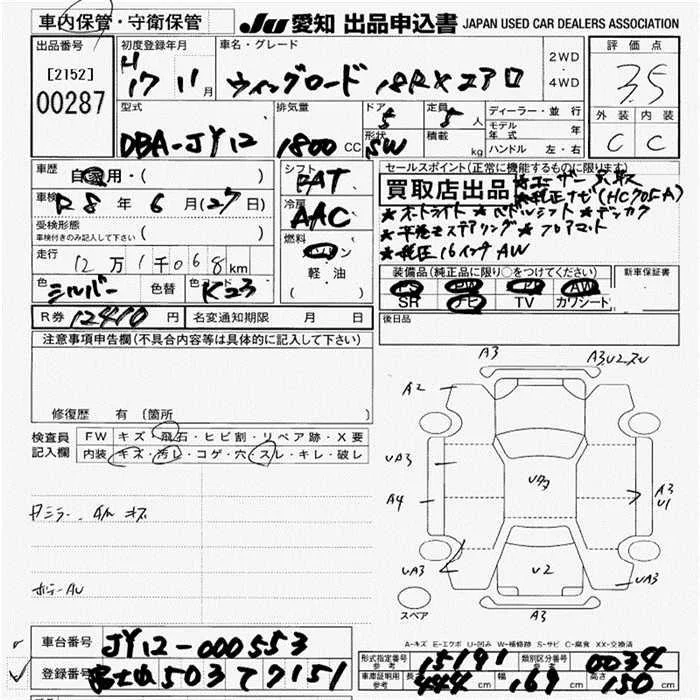 車内保管・守衛保管
JU 愛知 出品申込書 JAPAN USED CAR DEALERS ASSOCIATION
出品番号
[2152]
00287
初度登録年月
H 17 11月
車名・グレード
ウィングロード 18RX エアロ
2WD
4WD
評価点
3.5
外装 内装
C C
型式
DBA-JY12
排気量
1800 CC
ドア 5
形状 SW
定員 5人
積載 kg
ディーラー・並行
モデル年式 年
ハンドル 左・右
車歴
自家用・( )
車検
R8年6月(27日)
受検形態
車検付きのみ記入して下さい ( )
走行
12万1千068km
色
シルバー
色替
色コード
K23
シフト
FAT
冷房
AAC
燃料
ガソリン
軽・油
( )
セールスポイント(正常に機能するものに限ります)
買取店出品 ★ユーザー買取
★純正ナビ(HC705-A)
★オートライト ★
★ ★フロアマット
★純正16インチAW
装備品(純正品に限り○をつけてください)
PS PW AW
SR ナビ TV カワシート
新車保証書
後日品
R券 12410円
名変通知期限 月 日
注意事項申告欄(不具合内容等は具体的に記入して下さい)
修復歴 有 (箇所 )
検査員記入欄
FW キズ・飛石・ヒビ割・リペア跡・X要
内装 キズ・汚レ・コゲ・穴・スレ・キレ・破レ
A3
A3
A2
UA3
A4
A3
U1
U2
UA3
UA3
A3
スペア
A-キズ E-エクボ U-凹み W-補修跡 S-サビ C-腐食 XX-交換済
車台番号 JY12-000553
登録番号 富士山 503 て 7151
形式指定番号 参考 15191
類別区分番号 参考 0034
車庫証明用 参考 長さ 444 cm 幅 169 cm 高さ 150 cm